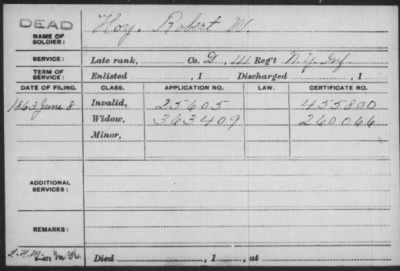 DEAD
NAME OF SOLDIER: Hoy, Robert W.
SERVICE: Late rank, Co. D, 44 Reg't N.Y. Inf.
TERM OF SERVICE: Enlisted , 1 Discharged , 1
DATE OF FILING. CLASS. APPLICATION NO. LAW. CERTIFICATE NO.
1863 June 8 Invalid, 25605 455800
Widow, 363409 260066
Minor,
ADDITIONAL SERVICES:
REMARKS:
Died , 1 , at